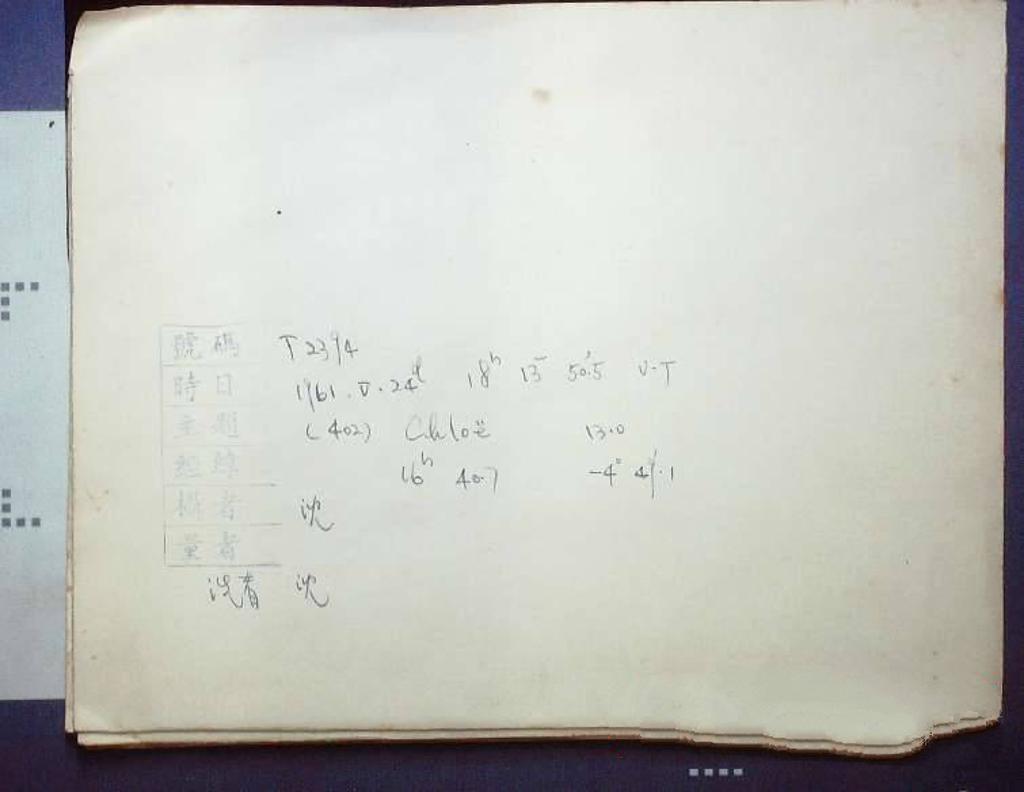 號碼 T 2394
時日 1961.V.24ᵈ 18ʰ 13ᵐ 50.ˢ5 U.T
主題 (402) Chloë 13.0
經緯 16ʰ 40.7 -4° 49'.1
攝者 沈
量者
洗者 沈